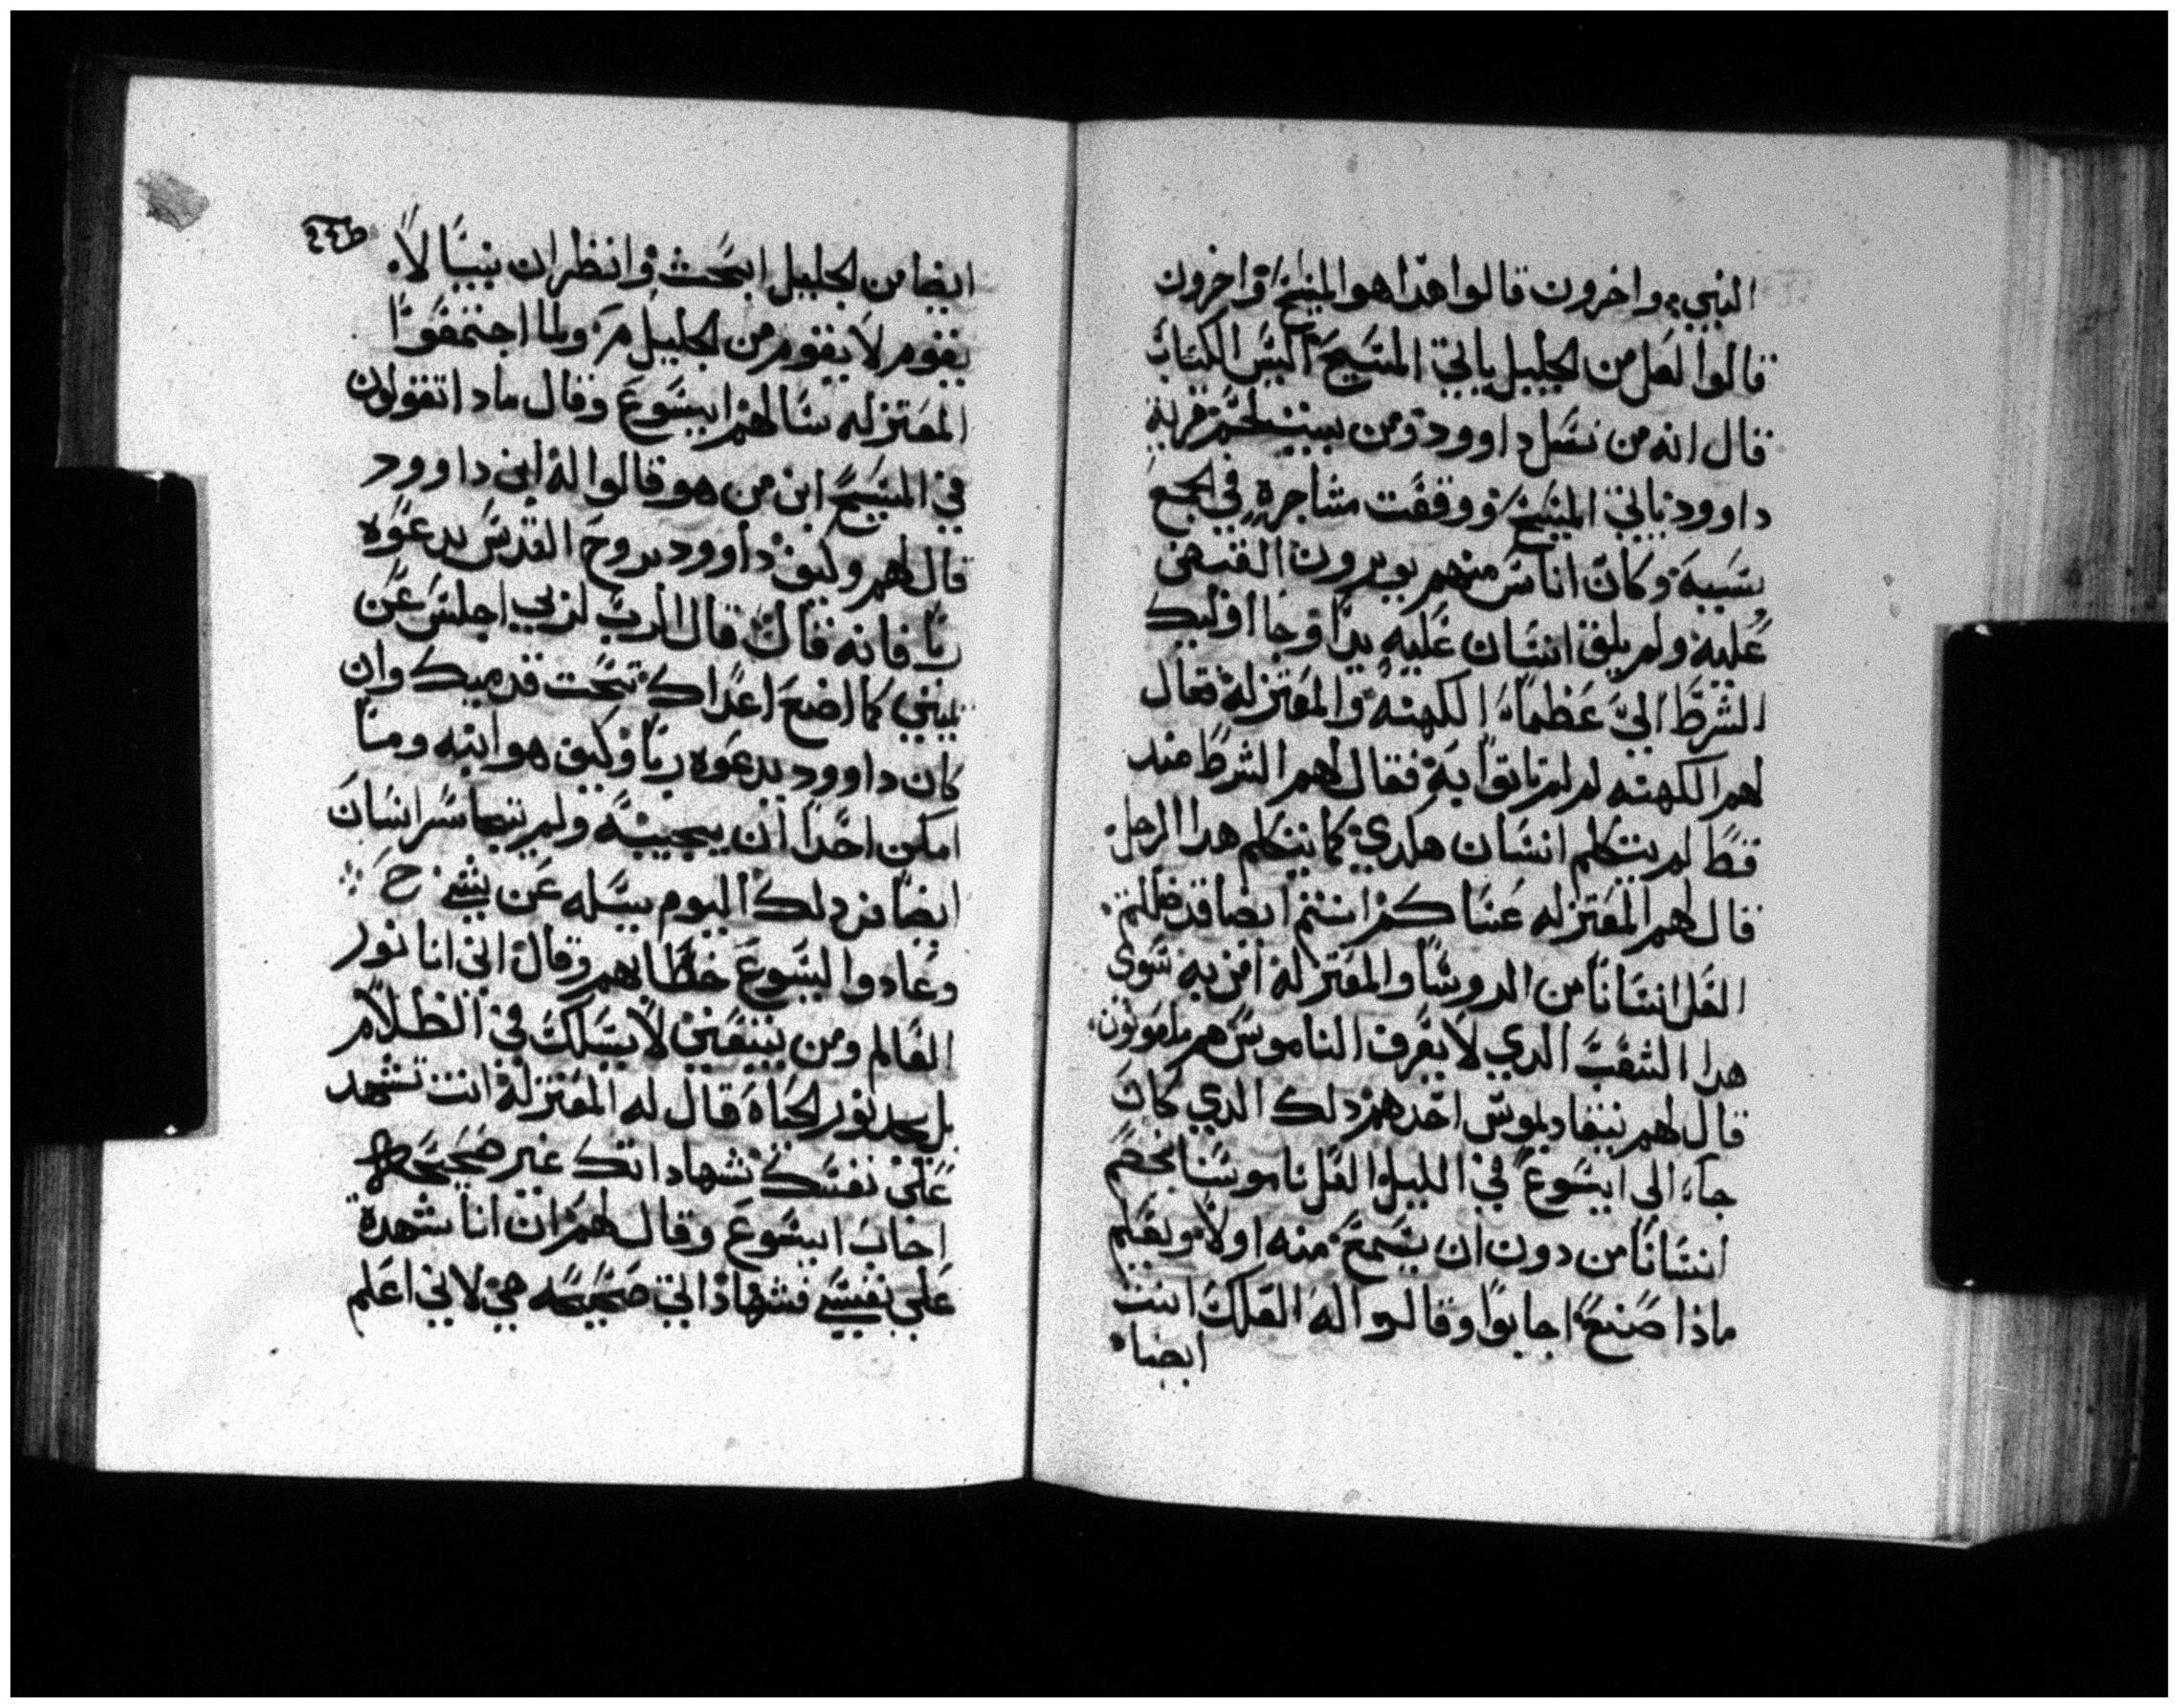 النبي؛ واخرون قالوا هدا هو المسيح واخرون
قالوا لعل من الجليل ياتي المسيح اليس الكتاب
قال انه من نسل داوود ومن بيت لحم قرية
داوود ياتي المسيح ووقفت مشاجره في الجمع
بسببه وكان اناس منهم يوبرون القبض
عليه ولم يلق انسان عليه يدا وجا اوليك
الشرط الي عظماء الكهنه والمعتزله فقال
لهم الكهنه لم لم تاتوا به فقال لهم الشرط مند
قط لم يتكلم انسان هكدي كما يتكلم هدا الرجل
قال لهم المعتزله عساكم انتم ايضا قد ضللتم
العل انسانا من الدروسا والمعتزله امن به سوى
هدا الشعب الدي لا يعرف الناموس هم ملعونون
قال لهم نيقاديموس احدهم دلك الدي كان
جاء الى ايسوع في الليل العل ناموسنا يخصم
انسانا من دون ان يسمع منه اولا ويعلم
ماذا صنع اجابوا وقالوا له العلك انت
ايضا
ايضا من الجليل ابحث وانظر ان نبيا لا
يقوم لا يقوم من الجليل مر ولما اجتمعوا
المعتزله سالهم ايسوع وقال مادا تقولون
في المسيح ابن من هو قالوا له ابن داوود
قال لهم وكيف داوود بروح القدس يدعوه
ربا فانه قال قال الرب لربي اجلس عن
يميني كما اضع اعداك تحت قدميك وان
كان داوود يدعوه ربا وكيف هو ابنه وما
امكن احدا ان يجيبه ولم يتجاسر انسان
ايضا من دلك اليوم يسله عن شي ح
وعادوا ليسوع خطابهم وقال اني انا نور
العالم ومن يتبعني لا يسلك في الظلام
بل يجد نور الحياه قال له المعتزله انت تشهد
على نفسك شهاداتك غير صحيحه
اجاب ايسوع وقال لهم ان انا شهدة
علي نفسي فشهاداتي صحيحه هي لاني اعلم